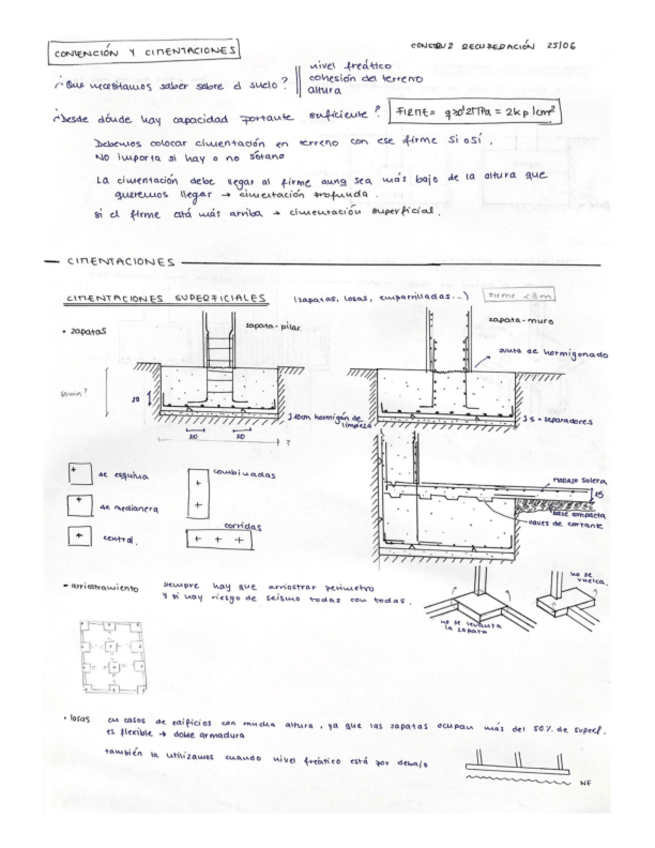 CONTENCIÓN Y CIMENTACIONES
CONSTRU 2 RECUPERACIÓN 25/06
¿Que necesitamos saber sobre el suelo?
nivel freático
cohesión del terreno
altura
¿Desde dónde hay capacidad portante suficiente?
FIRME = q>0'2MPa = 2kp/cm²
Debemos colocar cimentación en terreno con ese firme si o sí.
No importa si hay o no sótano
La cimentación debe llegar al firme aunq sea más bajo de la altura que
queremos llegar → cimentación profunda.
si el firme está más arriba → cimentación superficial.
CIMENTACIONES
CIMENTACIONES SUPERFICIALES (zapatas, losas, emparrilladas...) Firme <3m
• zapatas
zapata-pilar
zapata-muro
junta de hormigonado
20
10cm hormigón de
limpieza
20 20
?
5 = separadores
de esquina
combinadas
de medianera
central.
corridas
mallazo solera
15
base compacta
llaves de cortante
- arriostramiento
siempre hay que arriostrar perimetro
y si hay riesgo de seismo todas con todas.
no se levanta
la zapata
no se
vuelca.
• losas
en casos de edificios con mucha altura, ya que las zapatas ocupan más del 50% de superf.
es flexible → doble armadura
también la utilizamos cuando nivel freático está por debajo
NF